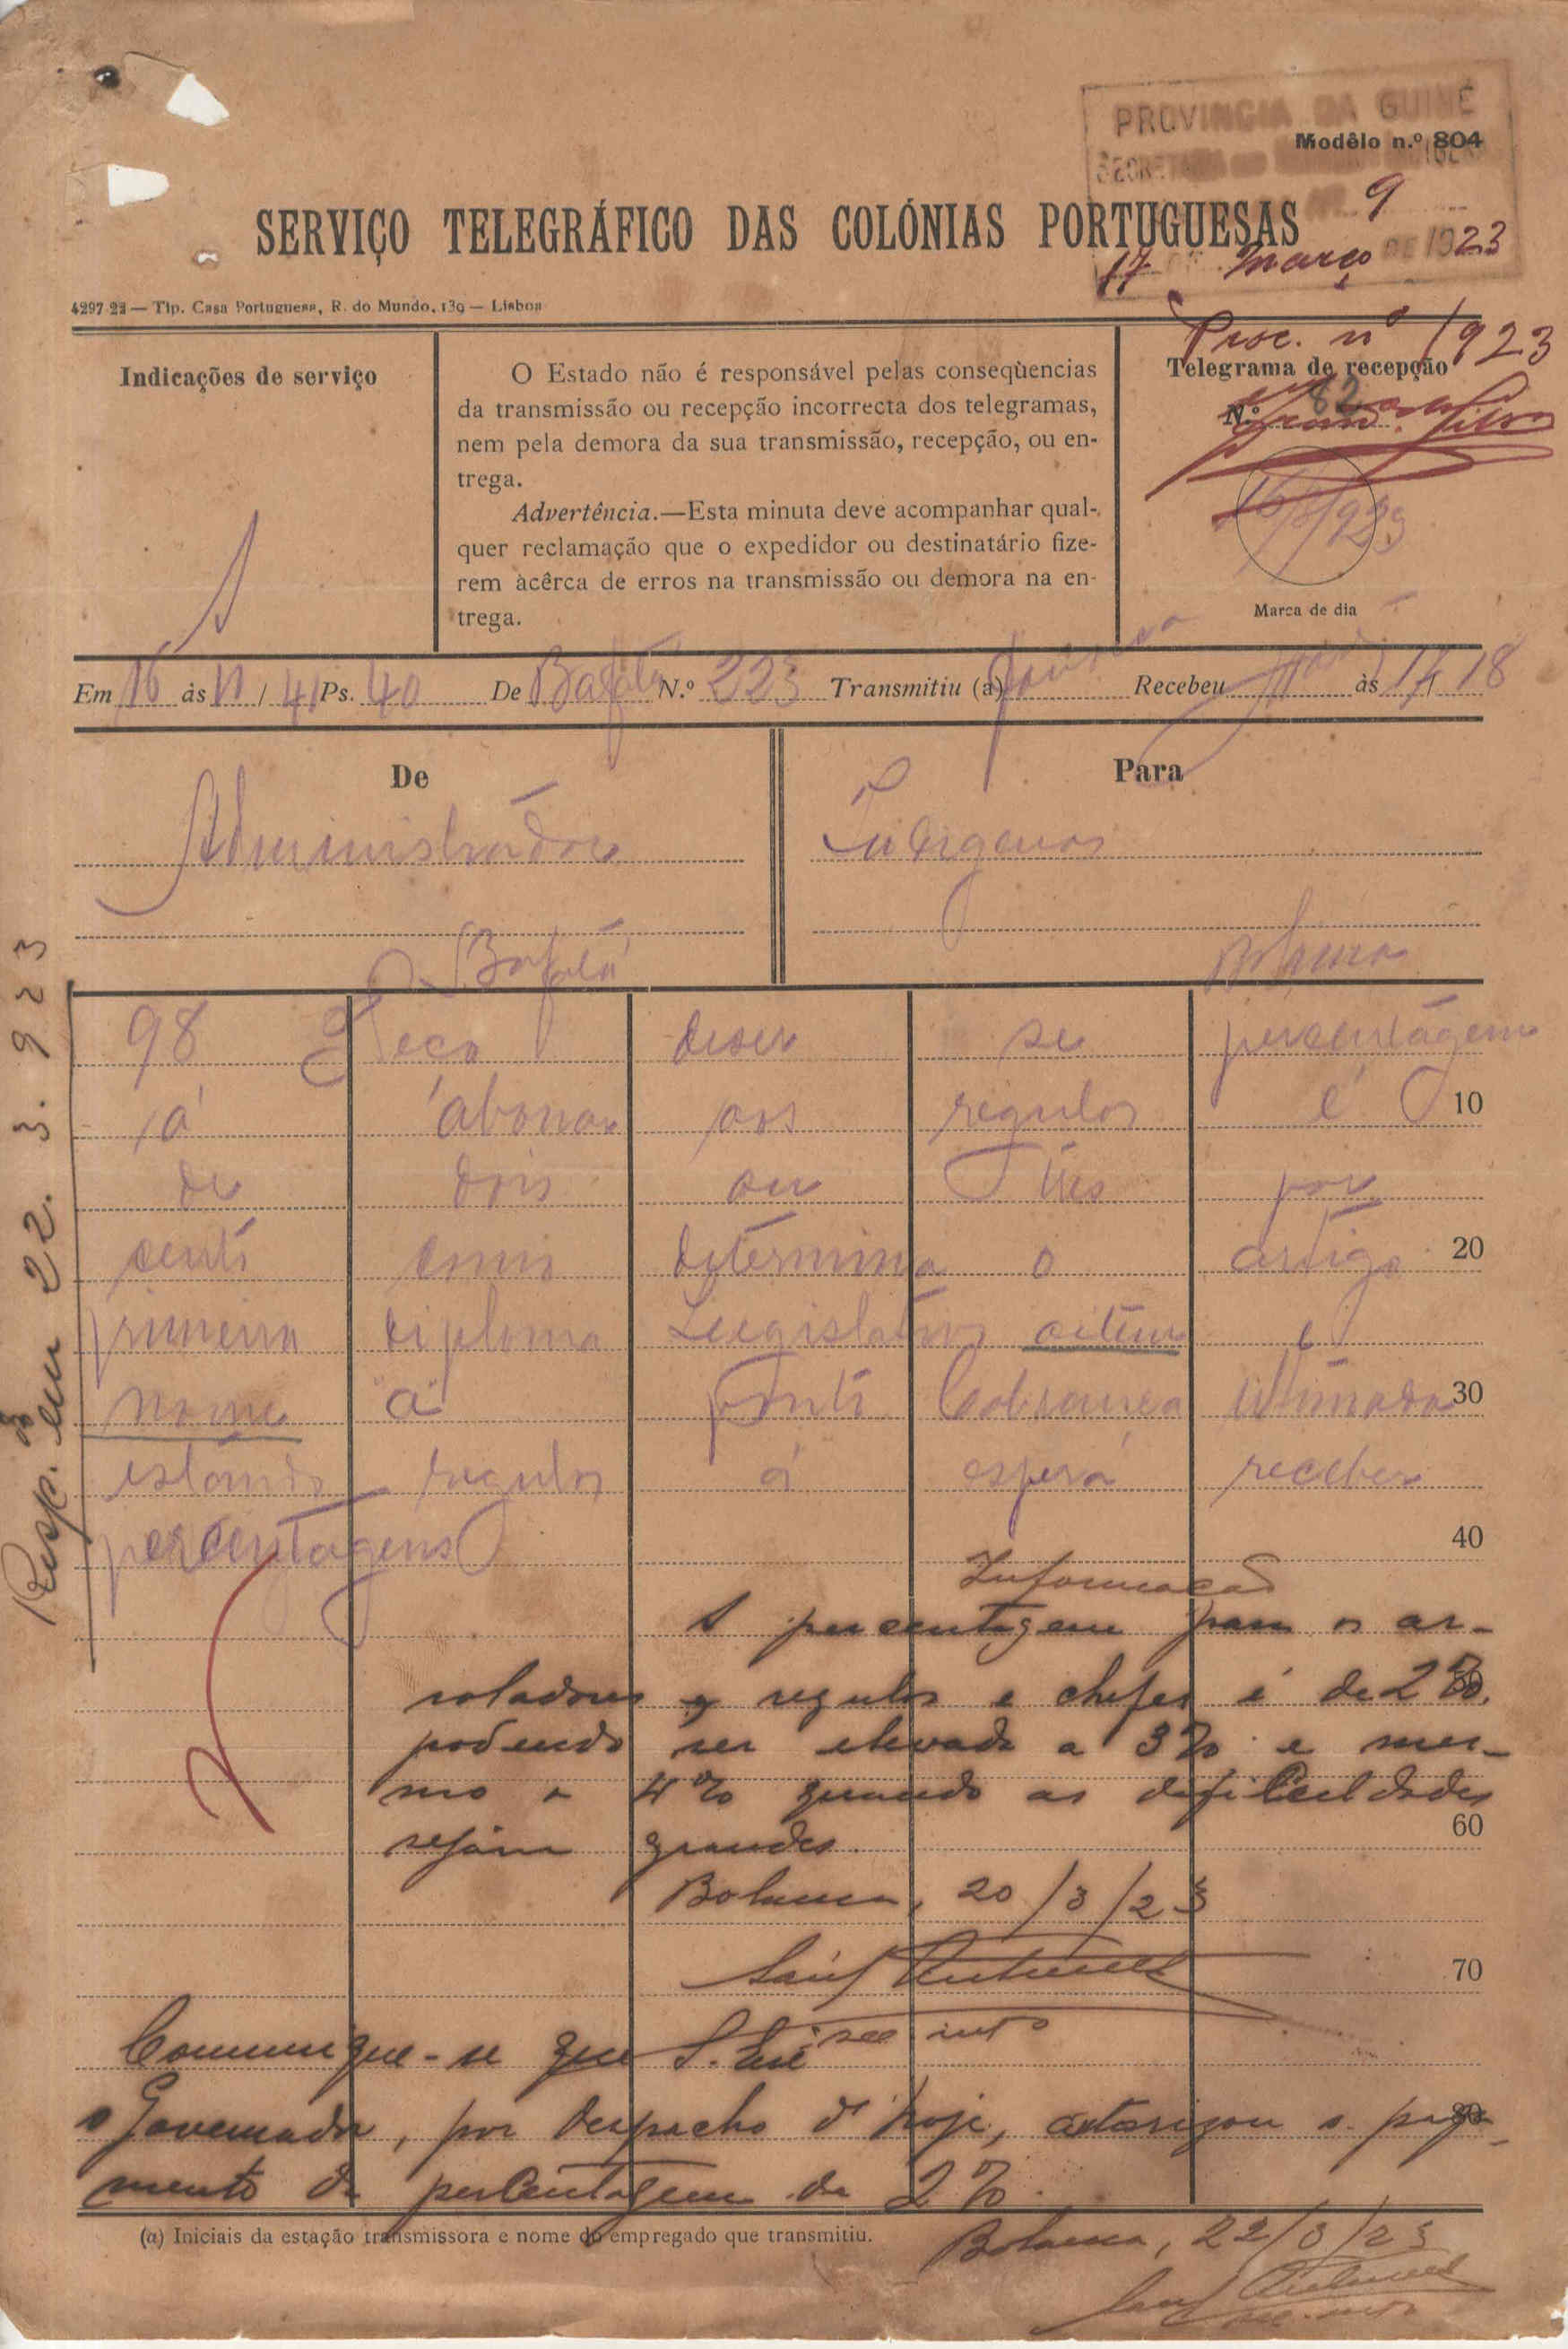 PROVINCIA DA GUINÉ
Modêlo n.º 804
9
SERVIÇO TELEGRÁFICO DAS COLÓNIAS PORTUGUESAS
17 Março DE 1923
4297-22 — Tip. Casa Portuguesa, R. do Mundo, 139 — Lisboa
Proc. nº 1923
Indicações de serviço
O Estado não é responsável pelas conseqùencias
da transmissão ou recepção incorrecta dos telegramas,
nem pela demora da sua transmissão, recepção, ou en-
trega.
Advertência.—Esta minuta deve acompanhar qual-
quer reclamação que o expedidor ou destinatário fize-
rem àcêrca de erros na transmissão ou demora na en-
trega.
Telegrama de recepção
N.º 82
16/3/923
Marca de dia
Em 16 às 11 / 41 Ps. 40 De Bafatá N.º 223 Transmitiu (a) Recebeu às 17/18
De
Administrador
Bafatá
Para
Indigenas
Bolama
98 Peço diser se percentagem
á abonar aos regulos é 10
de dois ou três por
cento como determina o artigo 20
primeiro diploma Legislativo oitenta e
nove "a" ponto Cobrança ultimada 30
estando regulos á espera receber
percentagens 40
Resp. em 22. 3. 923
Informação
A percentagem para os ar-
roladores regulos e chefes é de 2%, 50
podendo ser elevada a 3% e mes-
mo a 4% quando as dificuldades
sejam grandes. 60
Bolama, 20/3/23
70
sec. intº
Comunique-se que S. Exª
o Governador, por despacho d'hoje, autorisou o paga- 80
mento da percentagem de 2%.
(a) Iniciais da estação transmissora e nome do empregado que transmitiu.
Bolama, 22/3/23
sec. intº